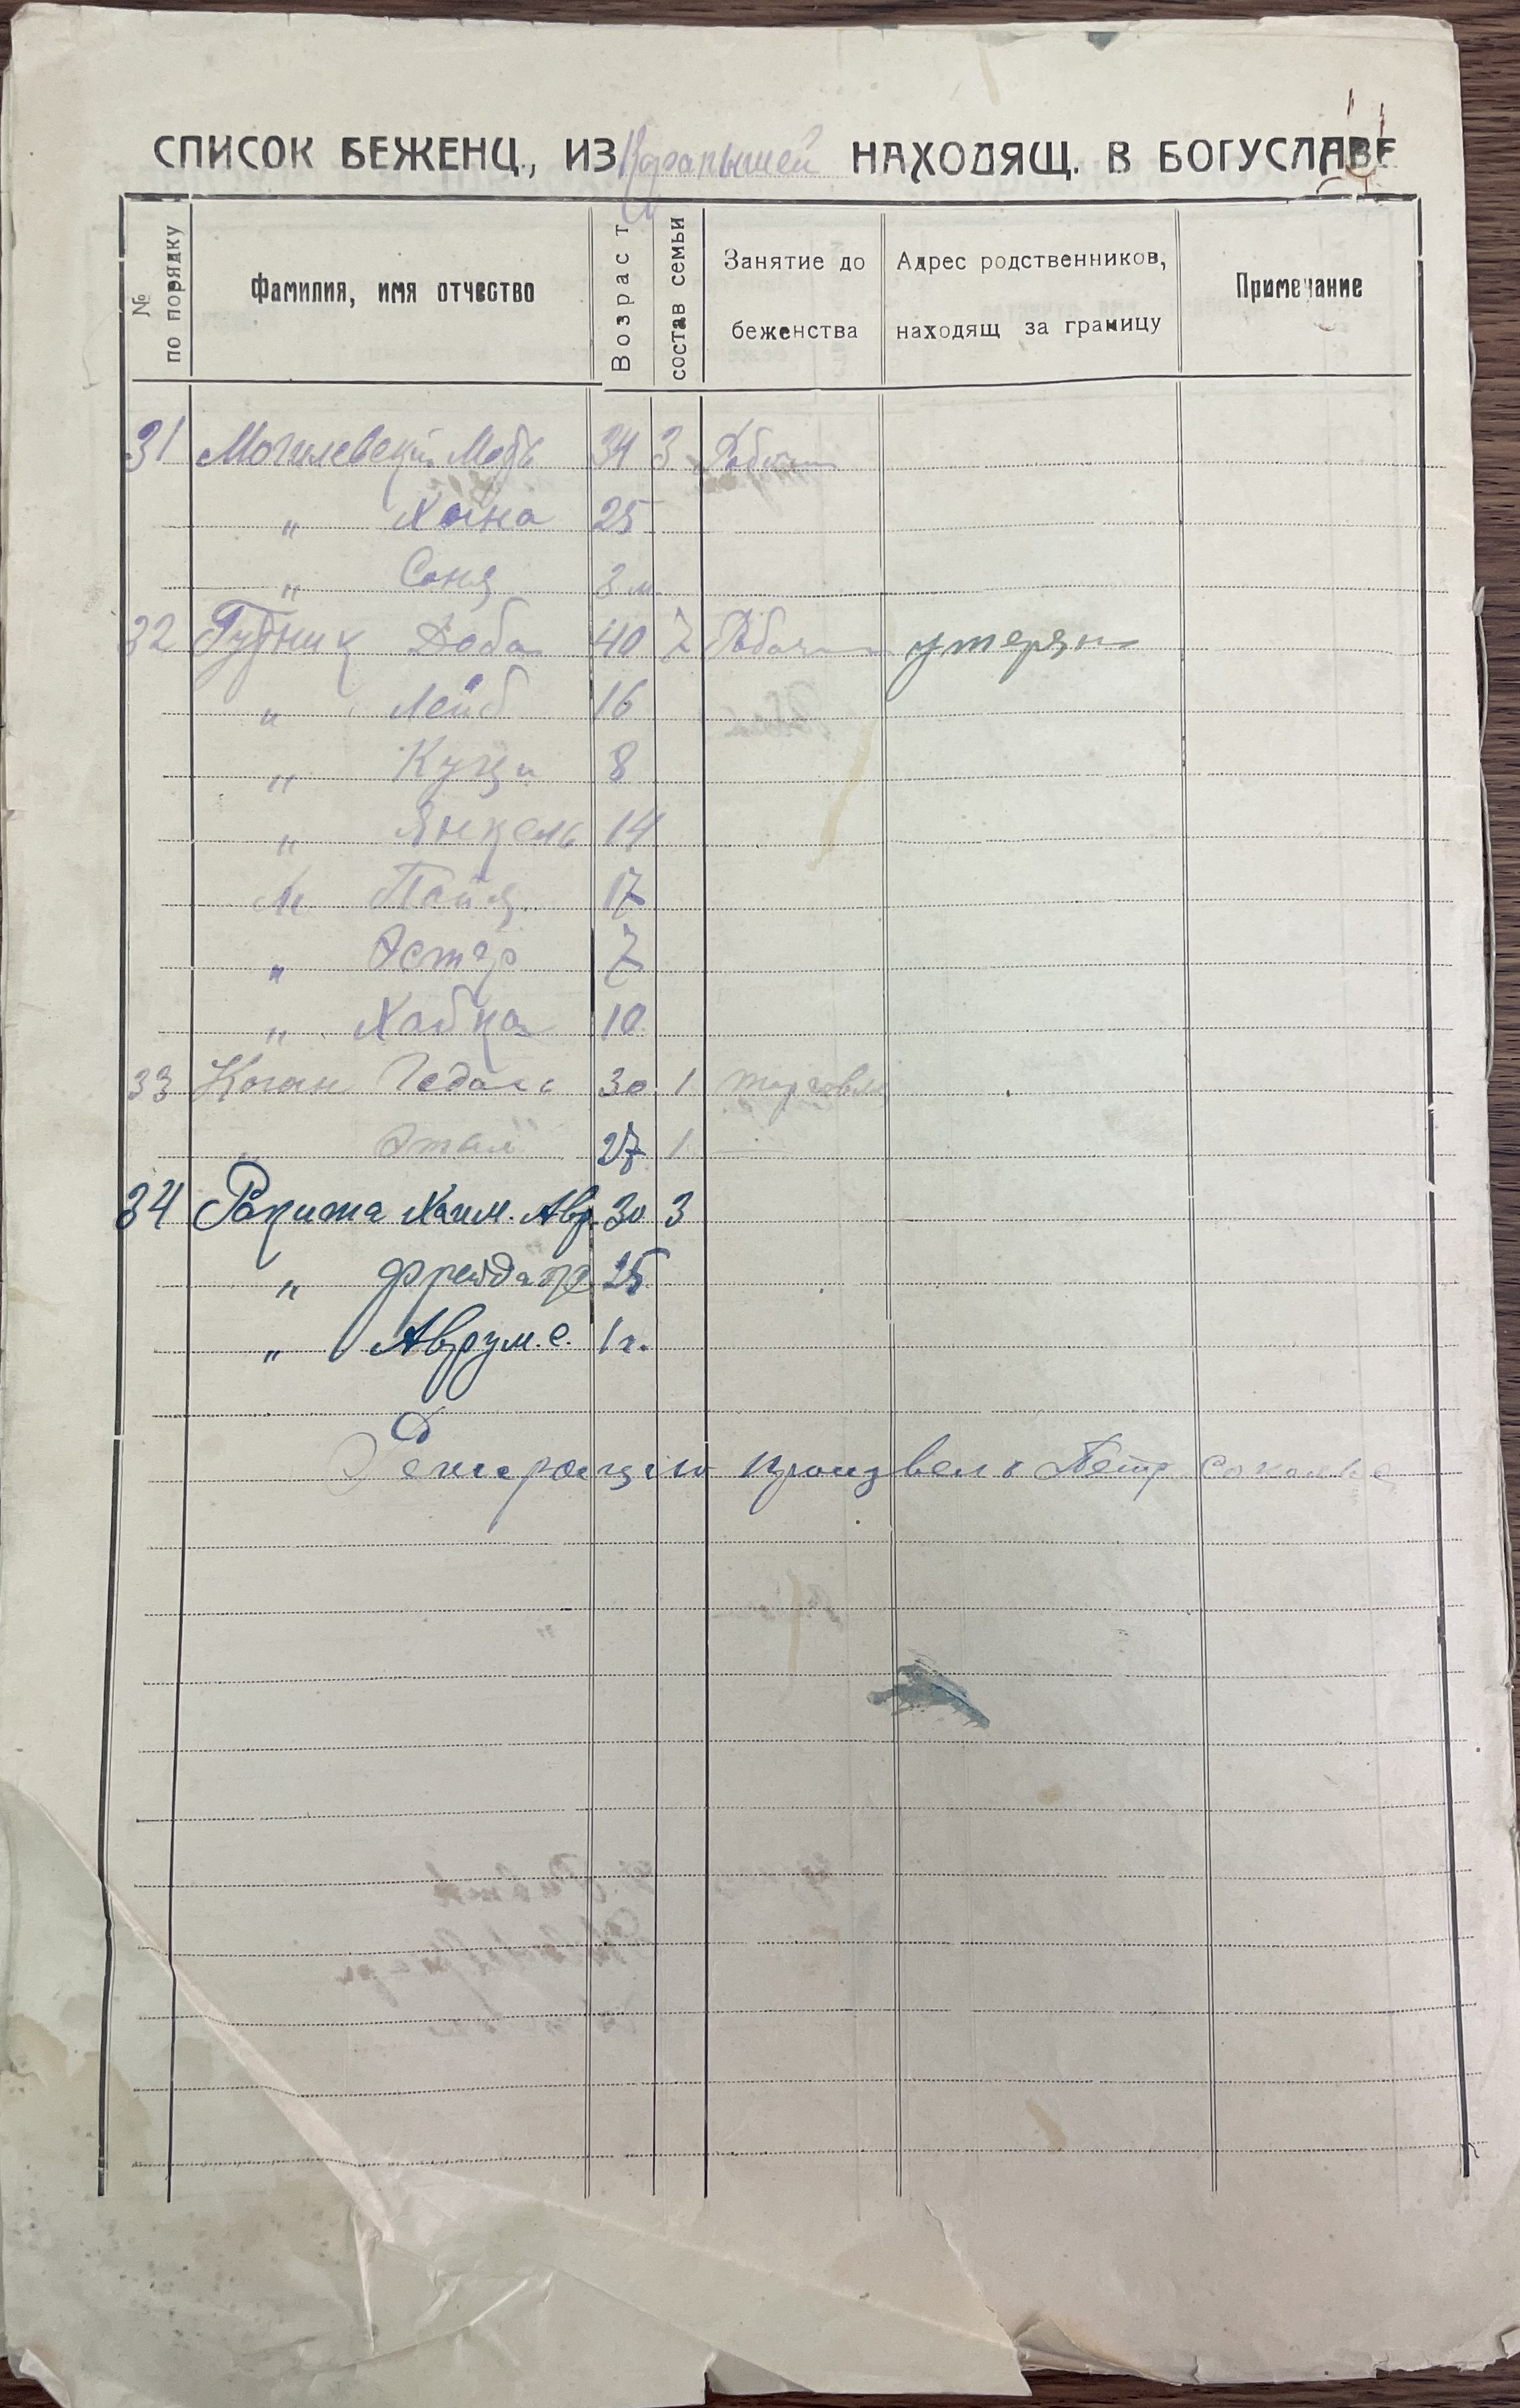 СПИСОК БЕЖЕНЦ., ИЗ Карапышей НАХОДЯЩ. В БОГУСЛАВЕ
№ по порядку
Фамилия, имя отчество
Возраст
состав семьи
Занятие до беженства
Адрес родственников, находящ за границу
Примечание
31 Могилевский 34 3 Рабочий
" Хайка 25
" Соня 3 м.
32 Гутник Доба 40 7 Рабочий утерян
" Лейб 16
" 8
" Янкель 14
" 17
" Эстер 7
" Хавка 10
33 Коган Гедаль 30 1 торговля
" Этал 27 1
34 Ракита Хаим. Авр. 30 3
" Фрейда 25
" Аврум. с. 1 г.
произвел Петр